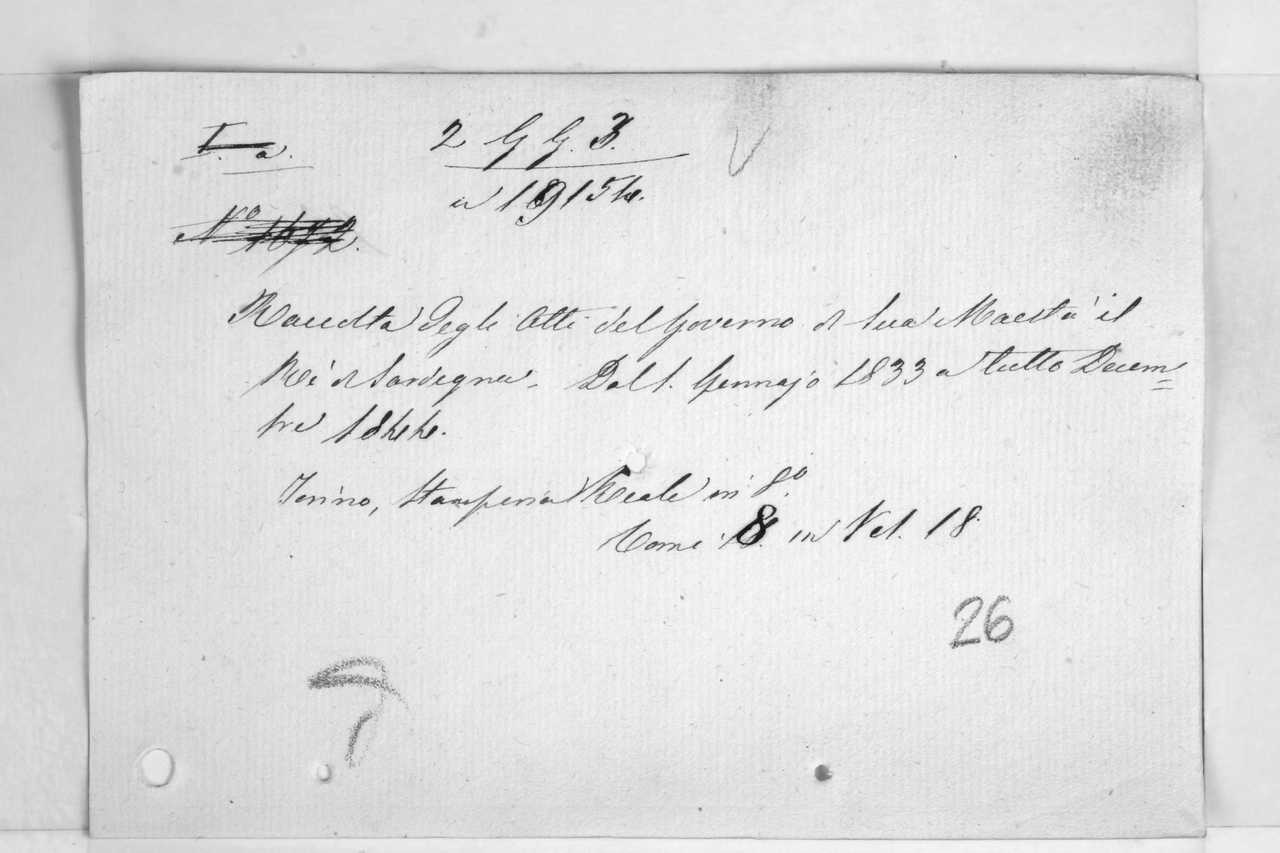 I. a.
2 G G. 3.
Raccolta degli Atti del Governo di Sua Maestà il
Re di Sardegna. Dal 1. Gennajo 1833 a tutto Decem=
bre 1844.
Torino, Stamperia Reale in 8.º
Tome 8. in Vol. 18
26